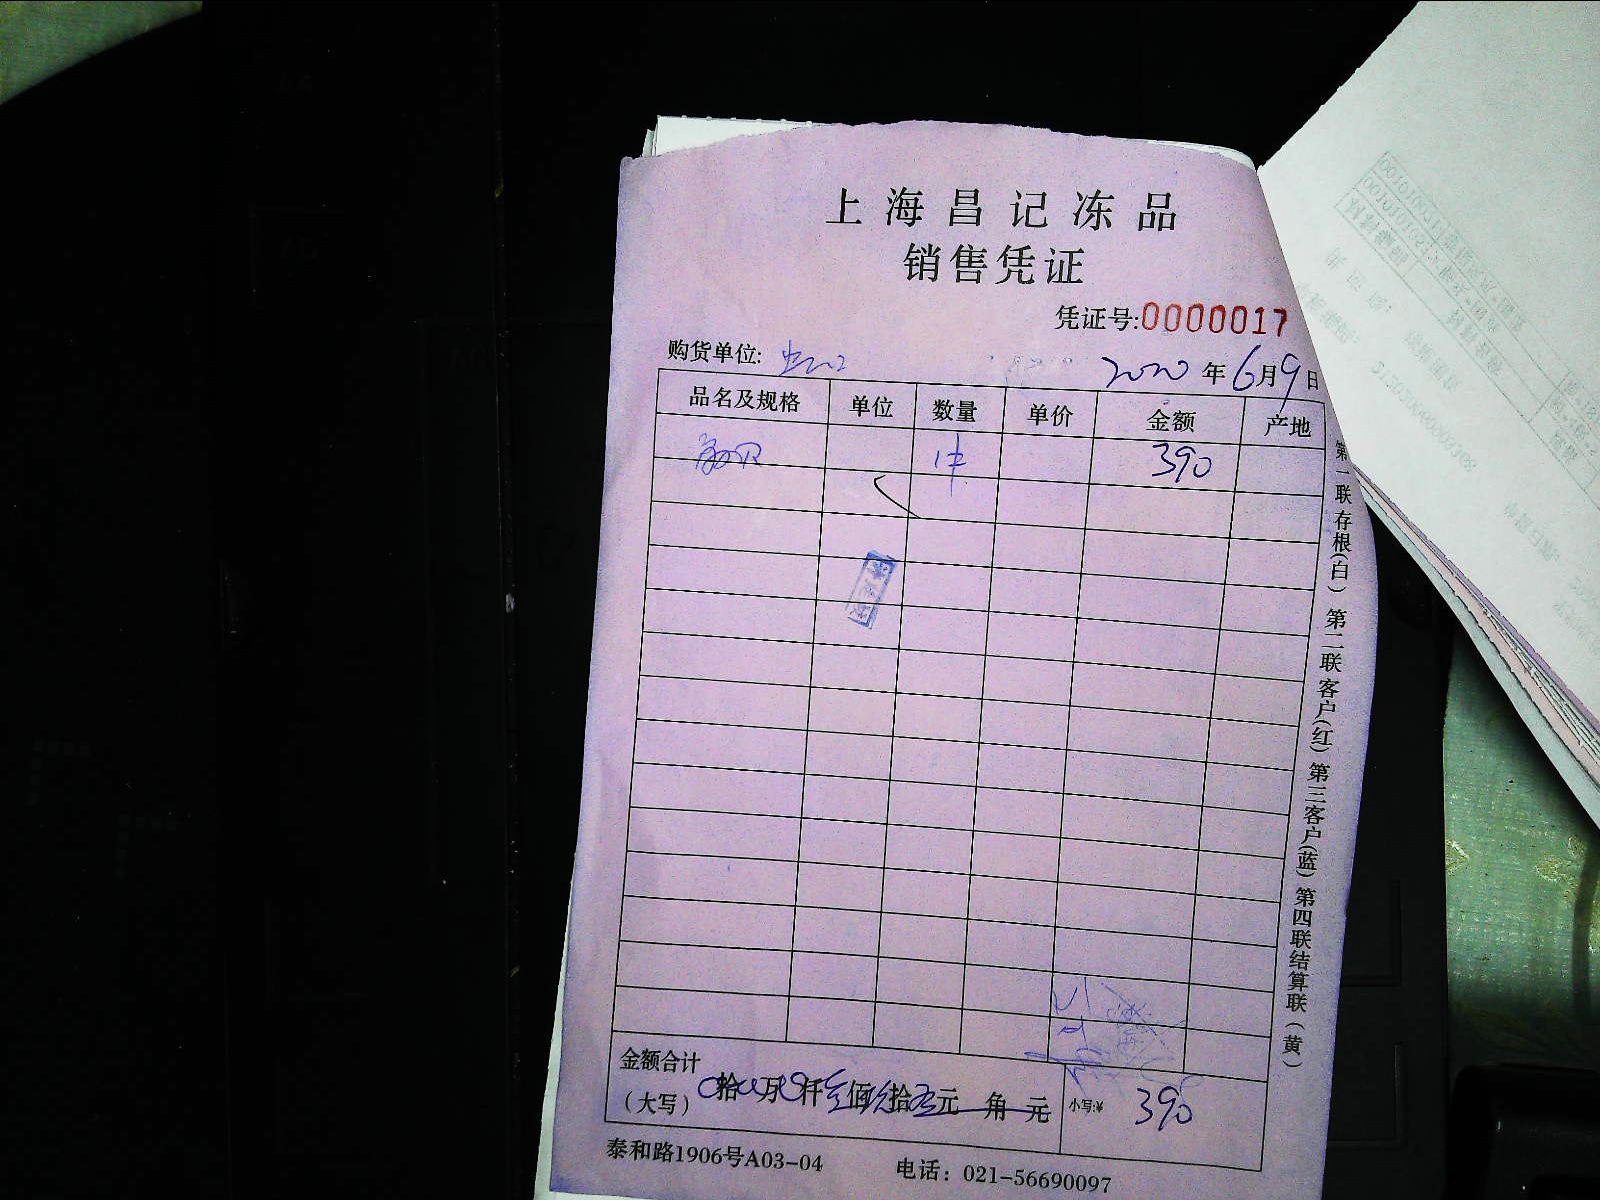 上海昌记冻品
销售凭证
凭证号:0000017
购货单位:
2020年6月9日
品名及规格 单位 数量 单价 金额 产地
1件 390
金额合计
(大写) 拾 万 仟 佰 拾 元 角 元 小写:¥ 390
泰和路1906号A03-04 电话：021-56690097
第一联存根(白) 第二联客户(红) 第三客户(蓝) 第四联结算联(黄)